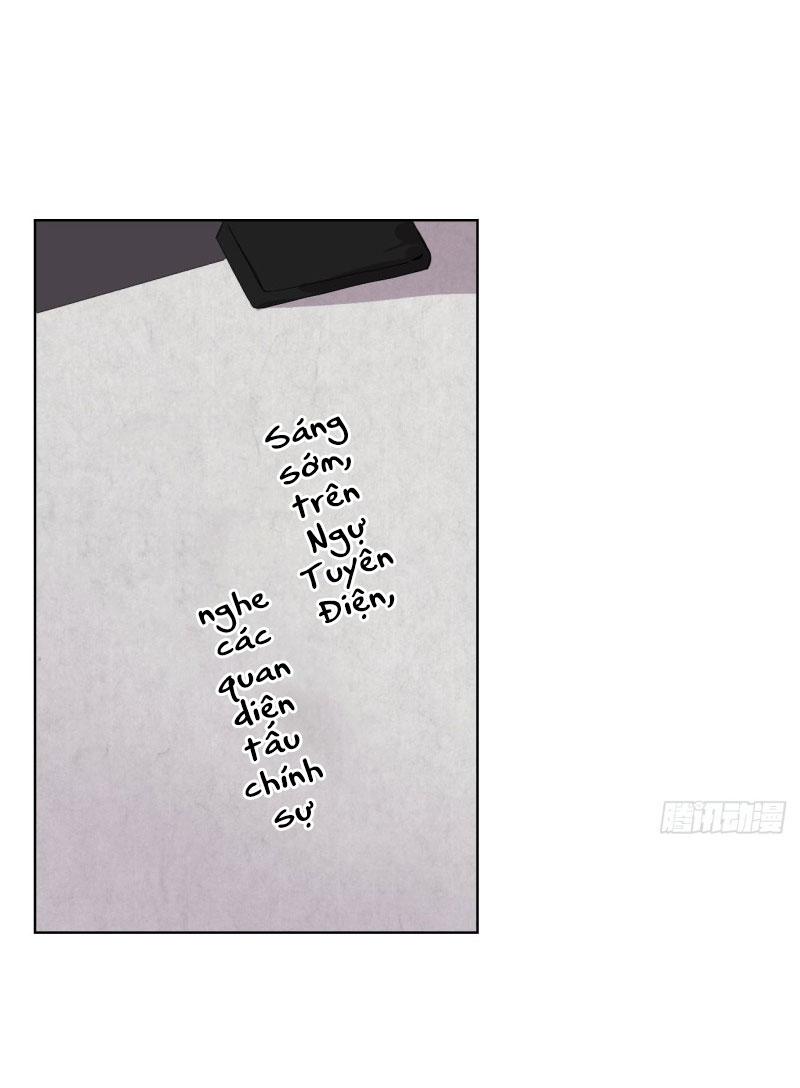 Sáng
sớm,
trên
Ngự
Tuyên
Điện,
nghe
các
quan
diện
tấu
chính
sự
腾讯动漫